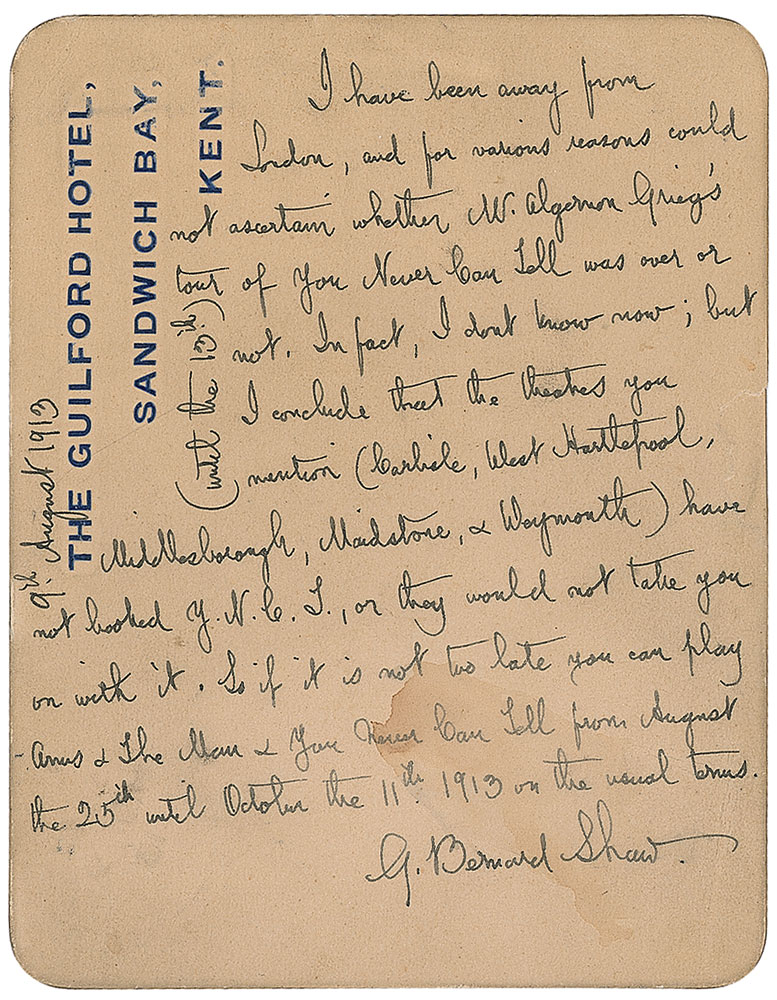 THE GUILFORD HOTEL,
SANDWICH BAY,
KENT.
(until the 13th.)
9th. August 1913
I have been away from
London, and for various reasons could
not ascertain whether Mr. Algernon Grieg's
tour of You Never Can Tell was over or
not. In fact, I dont know now; but
I conclude that the theatres you
mention (Carlisle, West Hartlepool,
Middlesborough, Maidstone, & Weymouth) have
not booked Y.N.C.T., or they would not take you
on with it. So if it is not too late you can play
Arms & The Man & You Never Can Tell from August
the 25th until October the 11th. 1913 on the usual terms.
G. Bernard Shaw.